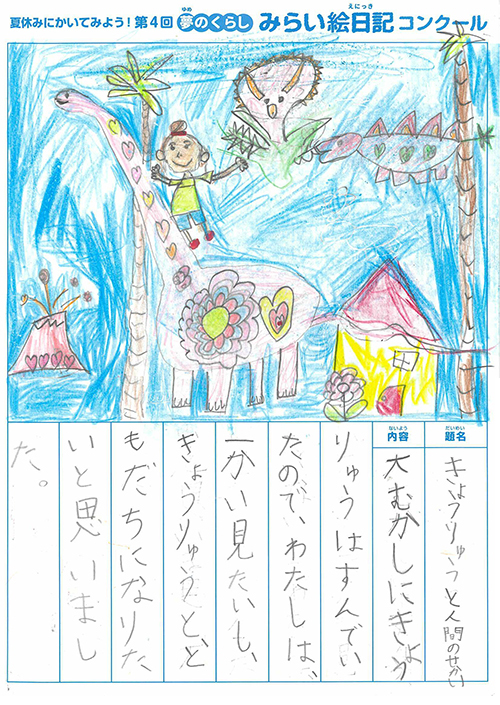 夏休みにかいてみよう！第4回 夢のくらし みらい絵日記コンクール
ゆめ
えにっき
だいめい
題名
きょうりゅうと人間のせかい
ないよう
内容
大むかしにきょう
りゅうはすんでい
たので、わたしは、
一かい見たいも、
きょうりゅうと、と
もだちになりた
いと思いまし
た。